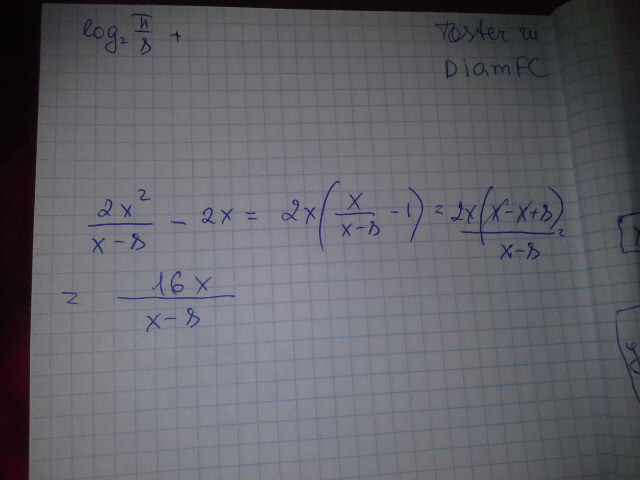 log₂ π/8 +
Toster.ru
DiamFC
2x²/(x-8) - 2x = 2x(x/(x-8) - 1) = 2x(x-x+8)/(x-8) =
= 16x/(x-8)